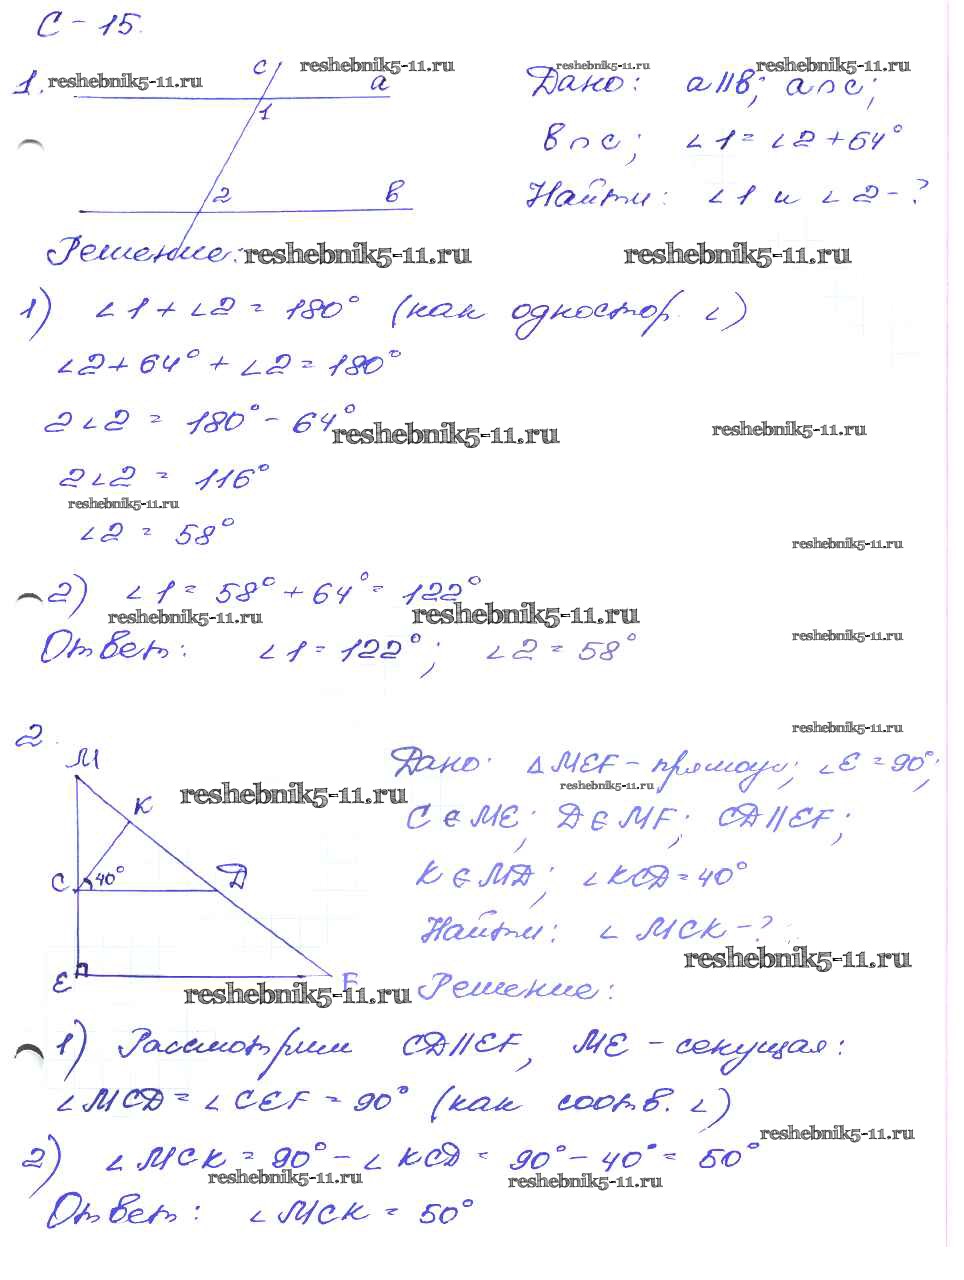 С - 15.
1. reshebnik5-11.ru c reshebnik5-11.ru a
1
2 в
reshebnik5-11.ru reshebnik5-11.ru
Дано: a||в; a∩c;
в∩c; ∠1 = ∠2 + 64°
Найти: ∠1 и ∠2 - ?
Решение: reshebnik5-11.ru reshebnik5-11.ru
1) ∠1 + ∠2 = 180° (как одностор. ∠)
∠2 + 64° + ∠2 = 180°
2∠2 = 180° - 64°
reshebnik5-11.ru reshebnik5-11.ru
2∠2 = 116°
reshebnik5-11.ru
∠2 = 58°
reshebnik5-11.ru
2) ∠1 = 58° + 64° = 122°
reshebnik5-11.ru reshebnik5-11.ru
reshebnik5-11.ru
Ответ: ∠1 = 122°; ∠2 = 58°
reshebnik5-11.ru
2.
M
K
C 40° D
E F
reshebnik5-11.ru
reshebnik5-11.ru
Дано: △MEF - прямоуг; ∠E = 90°;
reshebnik5-11.ru
C ∈ ME; D ∈ MF; CD||EF;
K ∈ MD; ∠KCD = 40°
Найти: ∠MCK - ?
reshebnik5-11.ru
Решение:
1) Рассмотрим CD||EF, ME - секущая:
∠MCD = ∠CEF = 90° (как соотв. ∠)
reshebnik5-11.ru
2) ∠MCK = 90° - ∠KCD = 90° - 40° = 50°
reshebnik5-11.ru reshebnik5-11.ru
Ответ: ∠MCK = 50°